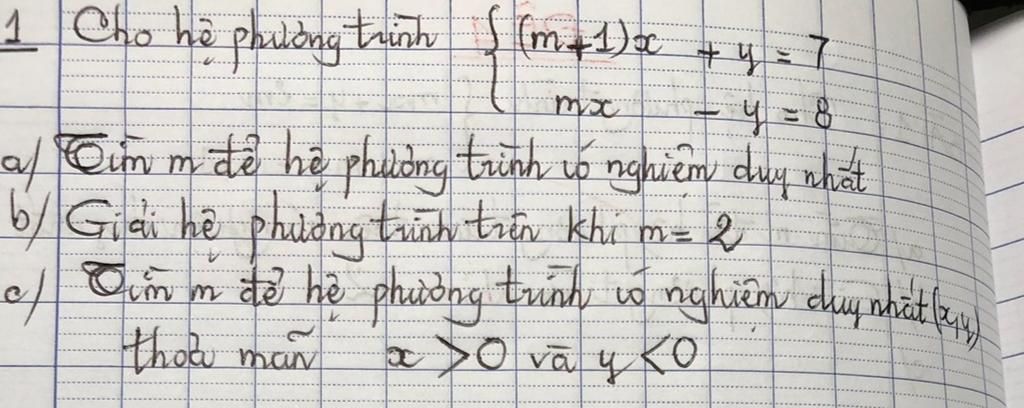 1 Cho hệ phương trình { (m+1)x + y = 7
mx - y = 8
a/ Tìm m để hệ phương trình có nghiệm duy nhất
b/ Giải hệ phương trình trên khi m = 2
c/ Tìm m để hệ phương trình có nghiệm duy nhất (x,y)
thoả mãn x > 0 và y < 0